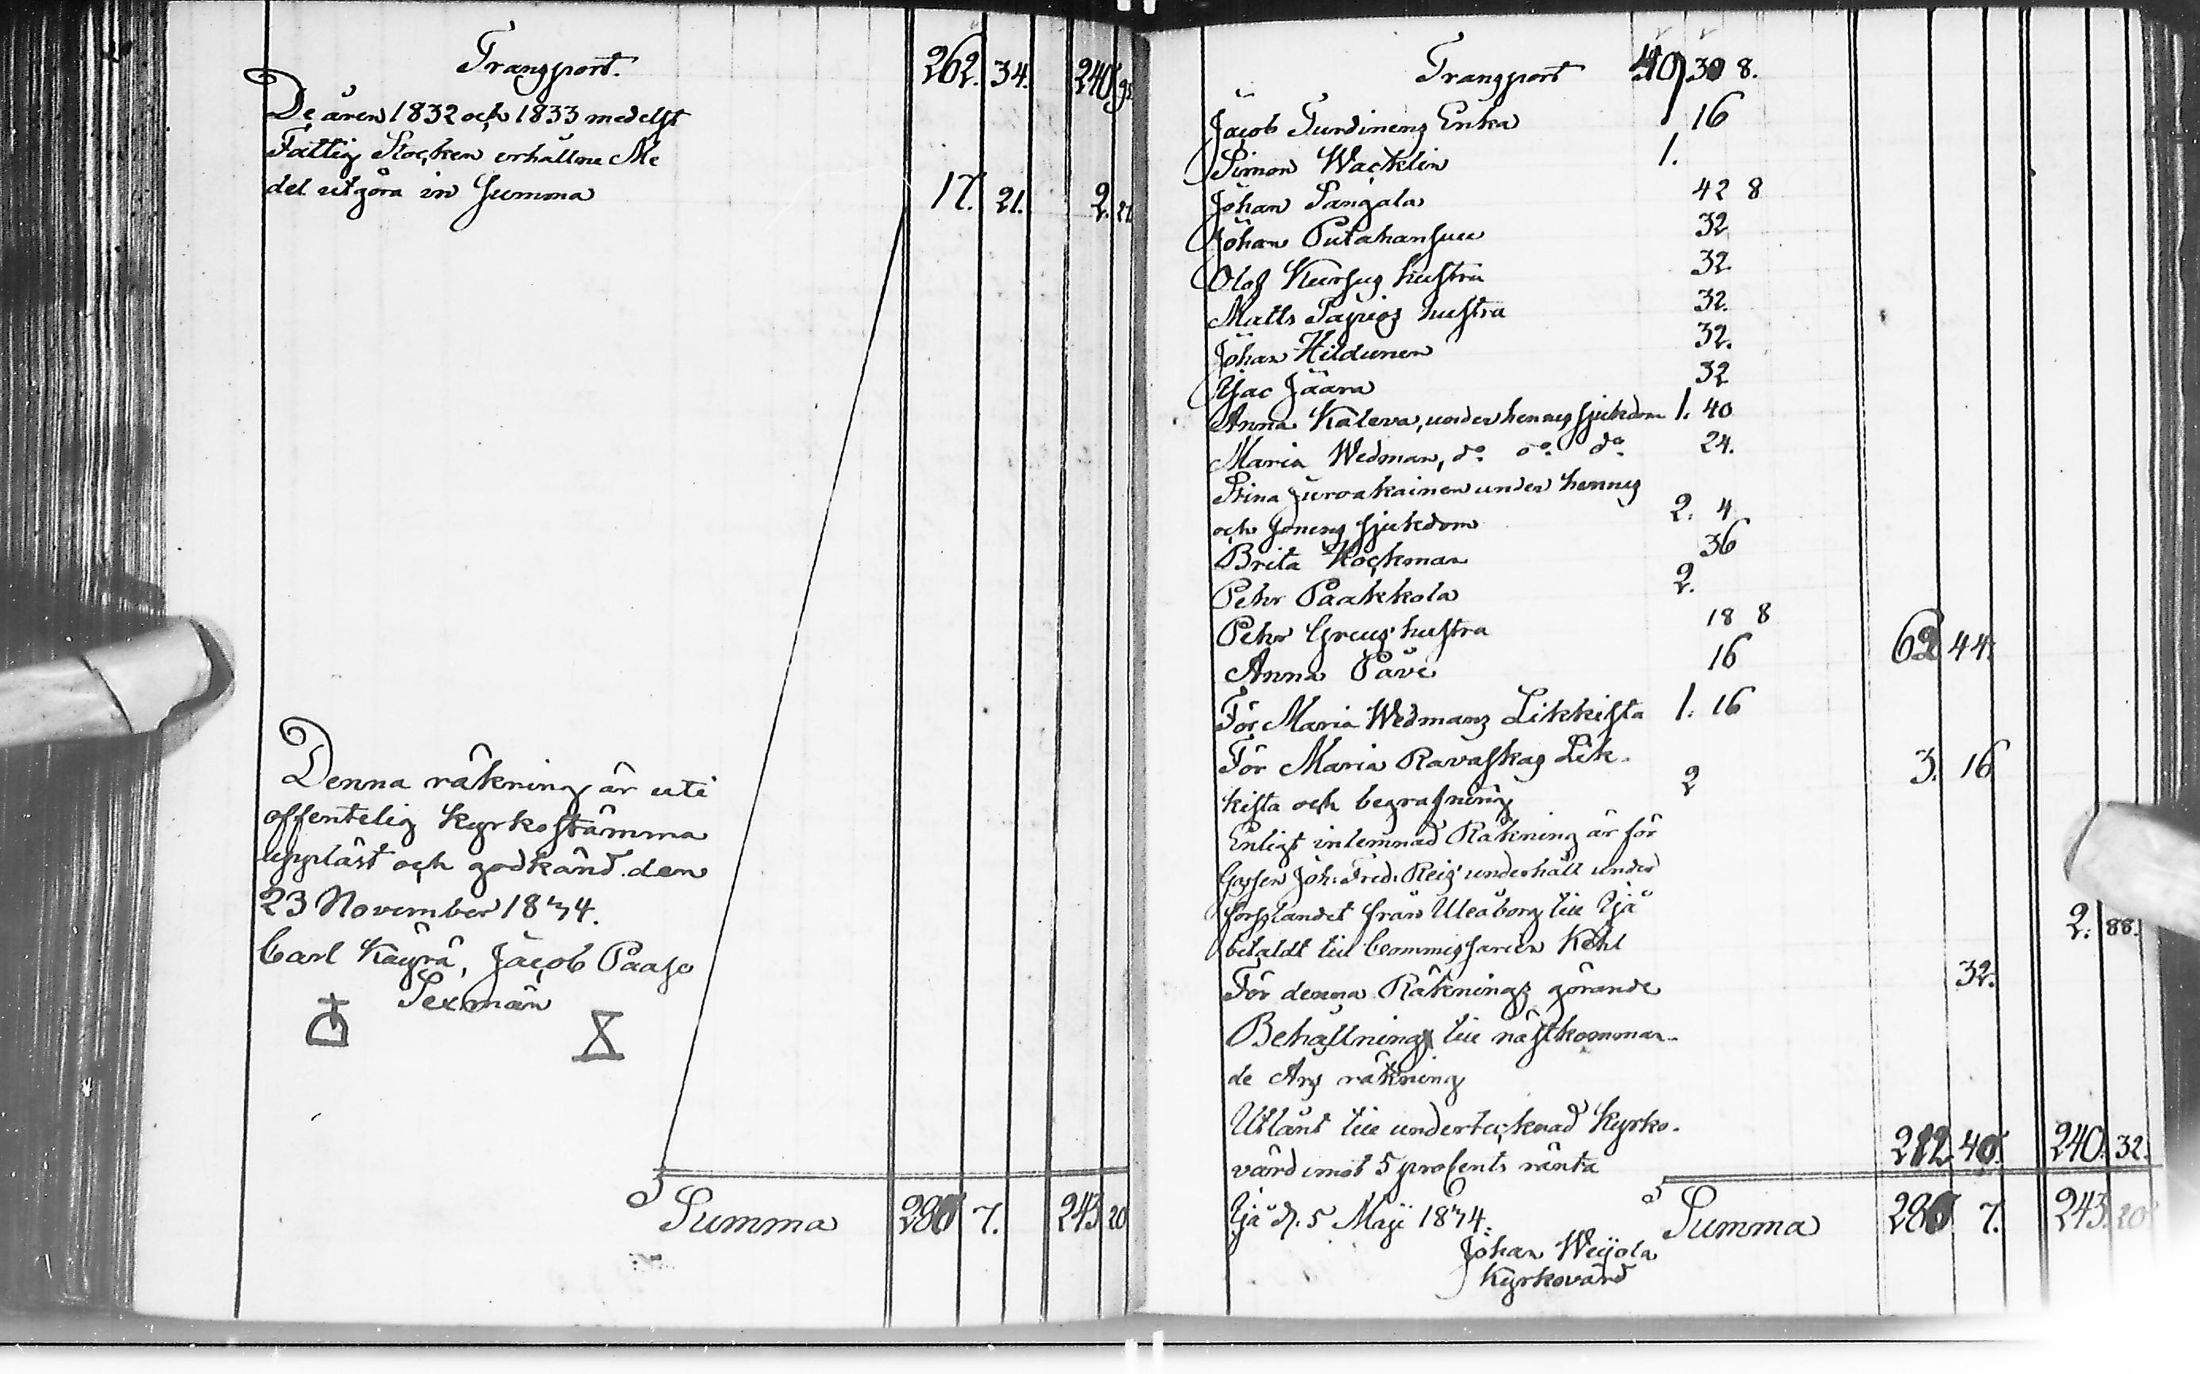 Transport. 262. 34. 240
De åren 1832 och 1833 medelst
Fattig Stocken erhållne Me
del utgöra in Summa 17. 21. 2. 21
Denna räkning är uti
offentelig Kyrkostämma
uppläst och godkänd den
23 November 1834.
Carl Käyrä, Jacob Paaso
Sexmän
Summa 280 7. 243 20
Transport 8.
Jacob Turdinens Enka 16
Simon Wacklin 1.
Johan Pangala 42 8
Johan Putahansuu 32
Olof Kursus hustru 32
Matts Päyriös hustru 32.
Johan Hildunen 32.
Isac Jäära 32
Anna Kaleva, under hennes sjukdom 1. 40
Maria Wedman, do do do 24.
Stina Juroakainen under hennes
och sonens sjukdom 2. 4
Brita Kockman 36
Pehr Paakkola 2.
Pehr Greus hustru 18 8
Anna Pävi 16 62 44.
För Maria Wedmans Likkista 1. 16
För Maria Ravaskas Lik-
kista och begrafning 2 3. 16
Enligt inlemnad Räkning är för
Gossen Joh: Fred: Reis underhåll under
forslandet från Uleåborg till Ijå
betaldt till Commissarien Kehl 2. 88.
För denna Räknings görande 32.
Behållning till nästkomman-
de Ars räkning
Utlånt till undertecknad Kyrko-
värd emot 5 proCents ränta 212 40. 240. 32.
Ijå d. 5 Maji 1834. Summa 280 7. 243. 20
Johan Weijola
Kyrkovärd